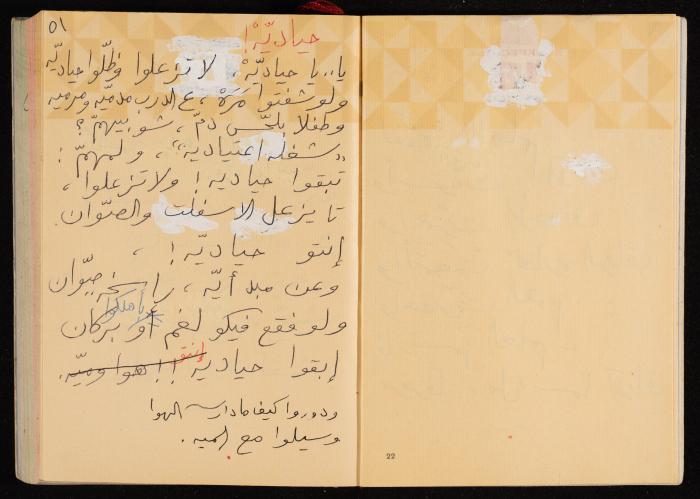 ٥١
حياديّة!
يا.. يا حياديّة، لا تزعلوا وظلّوا حياديّه
ولو شفتوا مَرَة، ع الدرب مدمّيه ومرميه
وطفلا بلحّس دمّ، شو بيهمّ؟
"شغله اعتياديه"، ولمهمّ:
تبقوا حياديه! ولا تزعلوا،
تا يزعل الاسفلت والصوّان.
إنتو حياديّه!،
وعن مبدأيّه، راسخه صوّان
بأملكوا
ولو فقع فيكو لغم أو بركان
إبقوا حياديه إنتو !! هوا وميّه.
ودوروا كيف ما دارت الهوا
وسيلوا مع الميه.
22